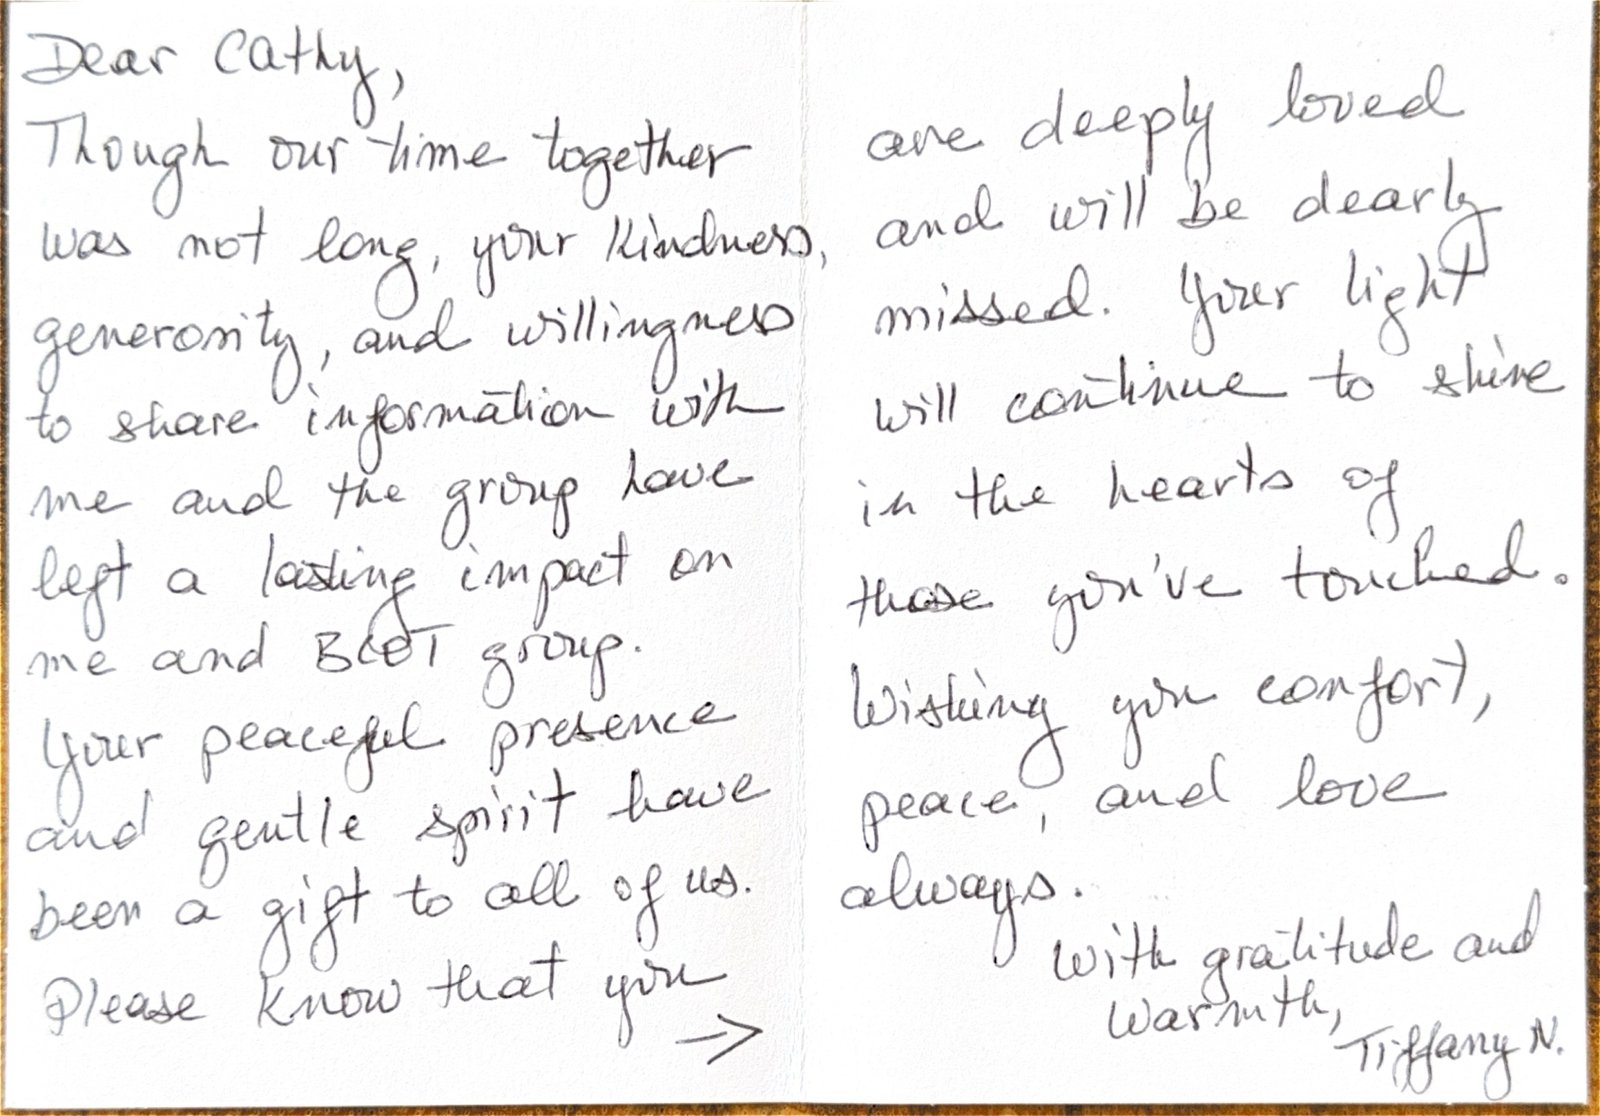 Dear Cathy,
Though our time together
was not long, your kindness,
generosity, and willingness
to share information with
me and the group have
left a lasting impact on
me and BCOT group.
Your peaceful presence
and gentle spirit have
been a gift to all of us.
Please know that you
→
are deeply loved
and will be dearly
missed. Your light
will continue to shine
in the hearts of
those you've touched.
Wishing you comfort,
peace, and love
always.
With gratitude and
warmth,
Tiffany N.